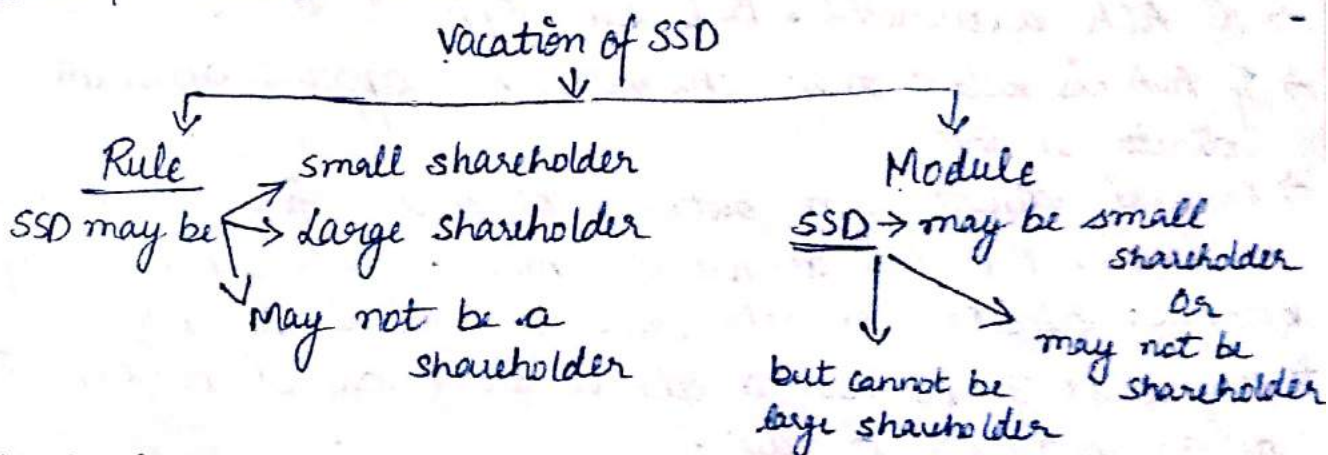 Vacation of SSD
Rule
SSD may be
small shareholder
Large shareholder
May not be a
shareholder
Module
SSD → may be small
shareholder
Or
may not be
shareholder
but cannot be
large shareholder